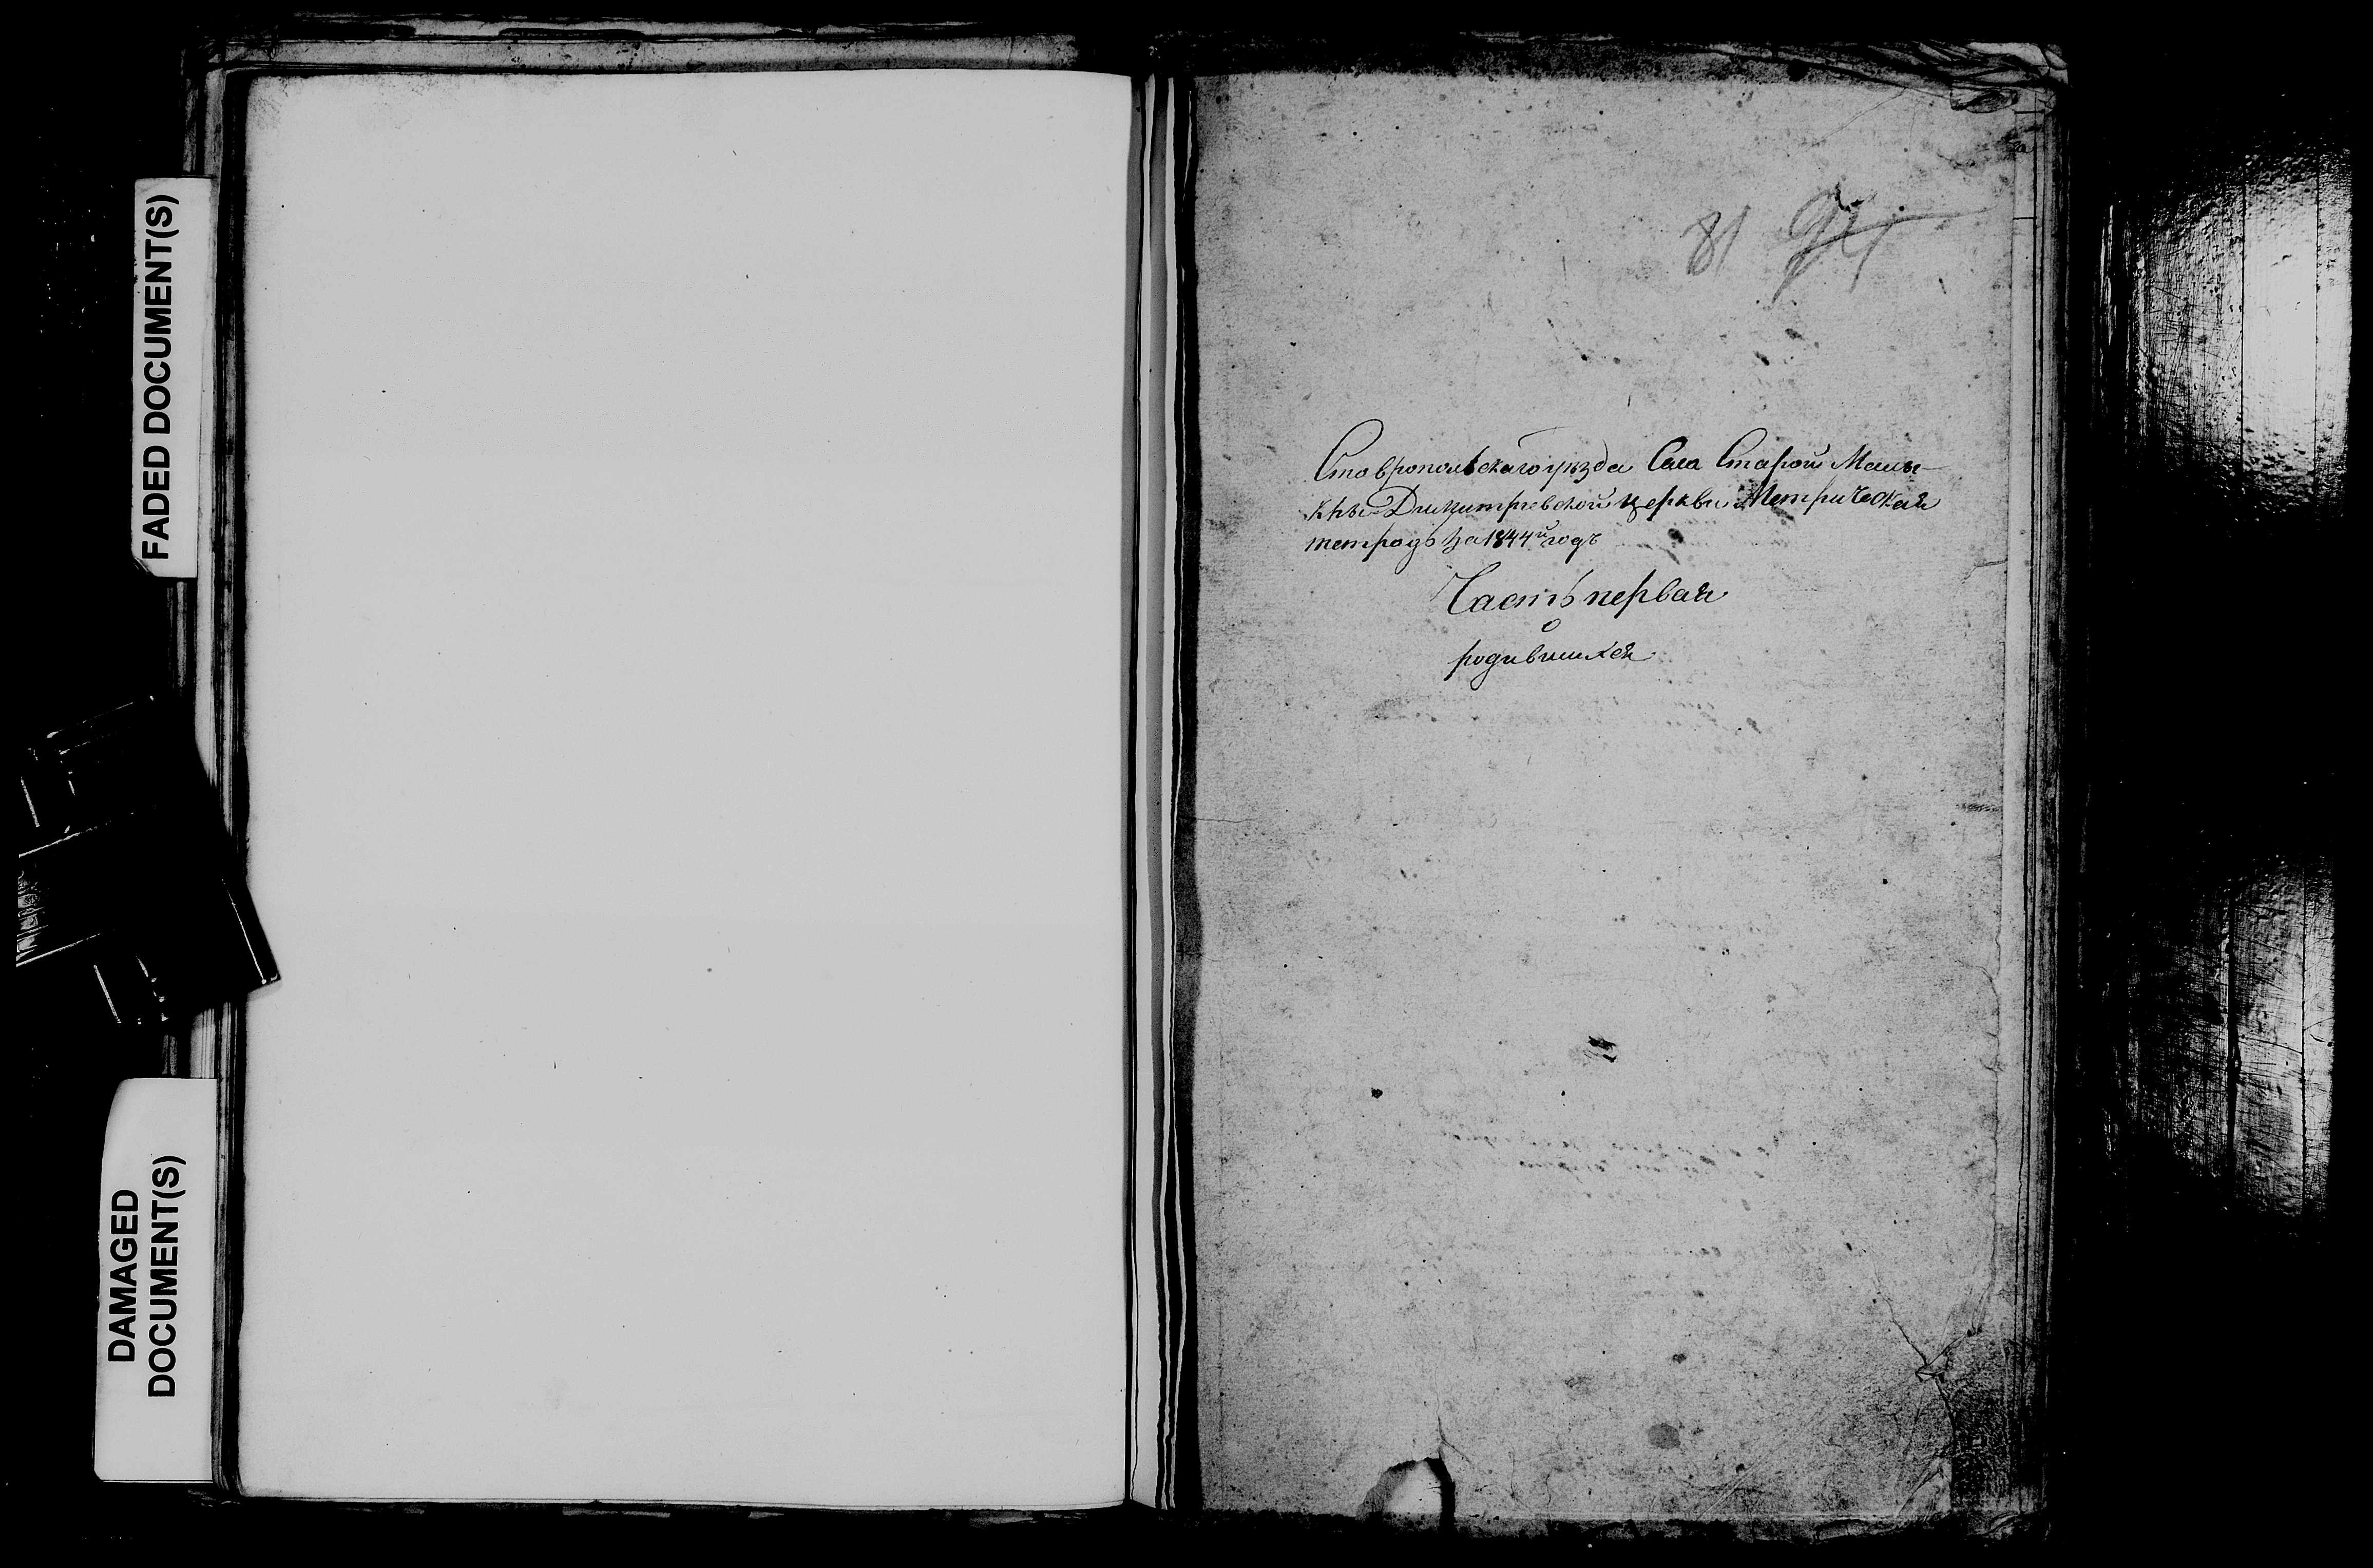 FADED DOCUMENT(S)
DAMAGED
DOCUMENT(S)
81
Ставропольскаго уѣзда Села Старой Маи-
ны Димитріевской церкви Метрическая
тетрадь за 1844й годъ
Часть первая
о
родившихся